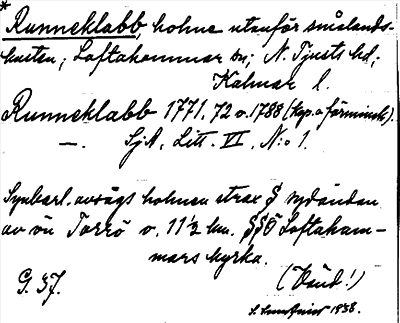 * Runneklabb, holme utanför smålands-
kusten; Loftahammar sn; N. Tjusts hd;
Kalmar l.
Runneklabb 1771. 72 o. 1788 (kop. o förminsk).
—. SjA, Litt. VI, N:o 1.
Synbarl. avsågs holmen strax § sydändan
av ön Torrö o. 11½ km. §§Ö Loftaham-
mars kyrka.
G. 37. (Vänd!)
1938.